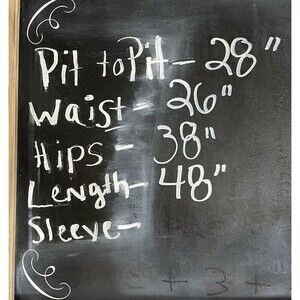 Pit to Pit - 28"
Waist - 26"
Hips - 38"
Length - 48"
Sleeve -